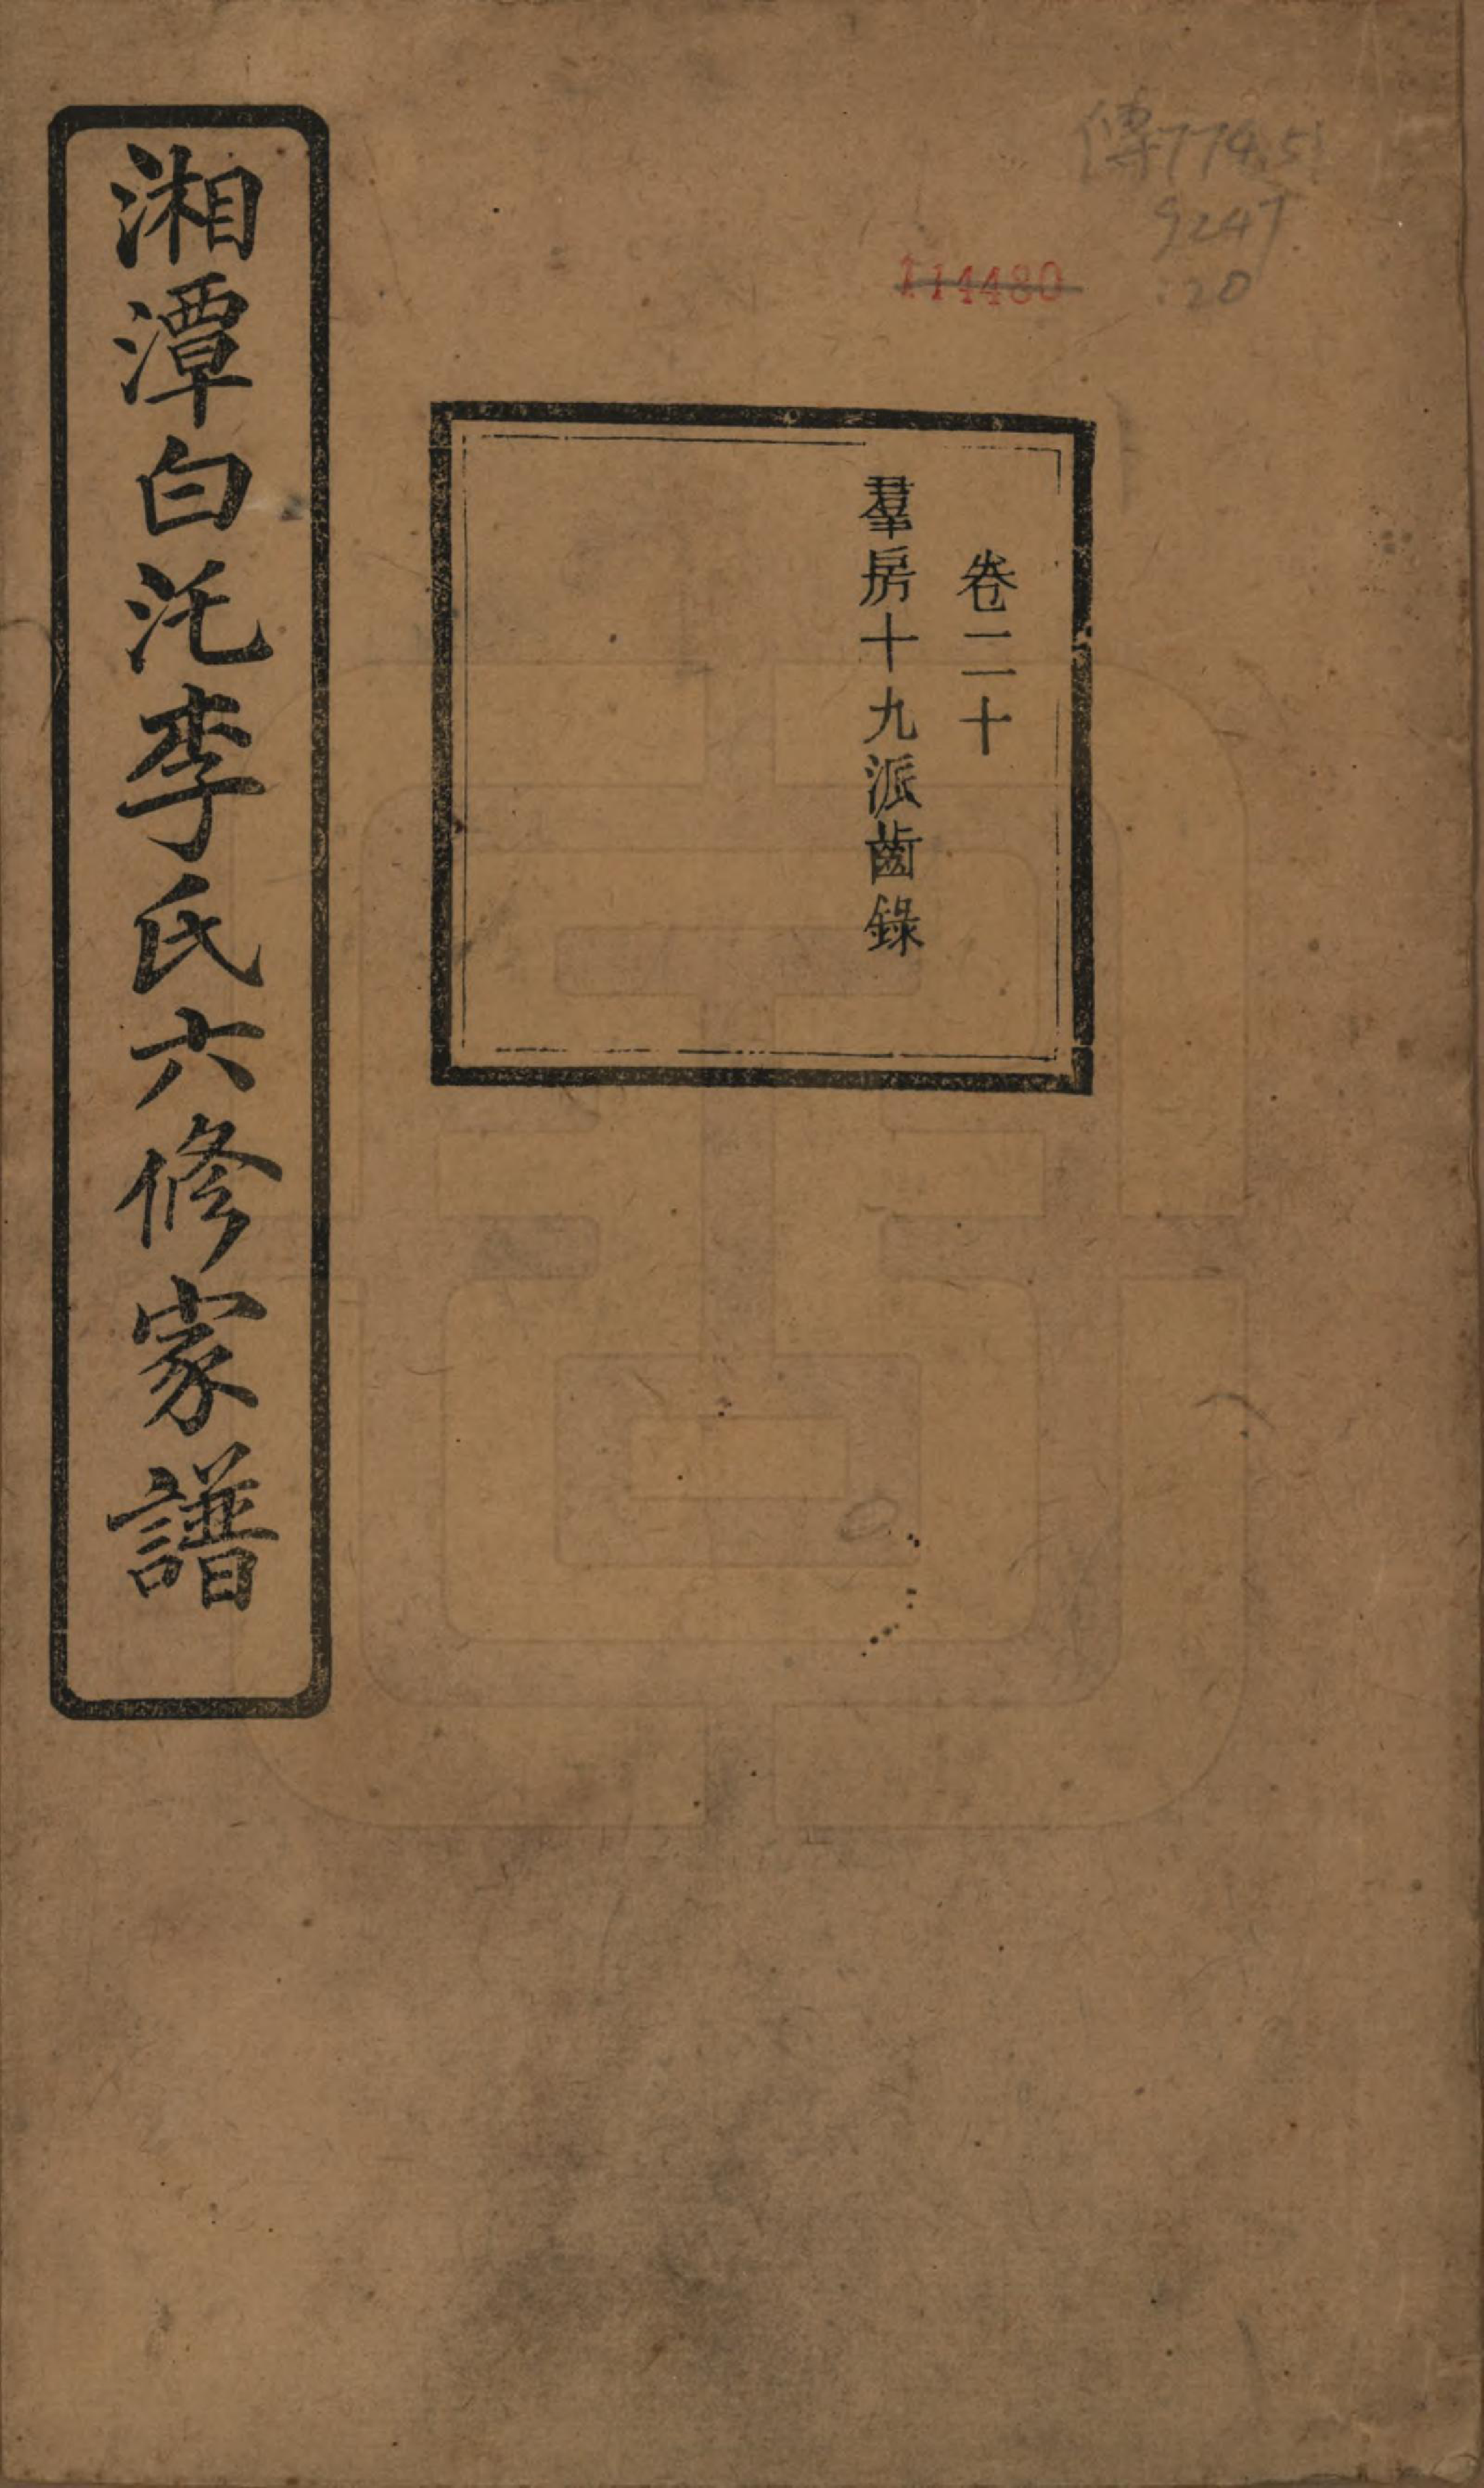 傳774.51
9247
:20
114480
卷二十
羣房十九派齒錄
湘潭白沱李氏六修家譜